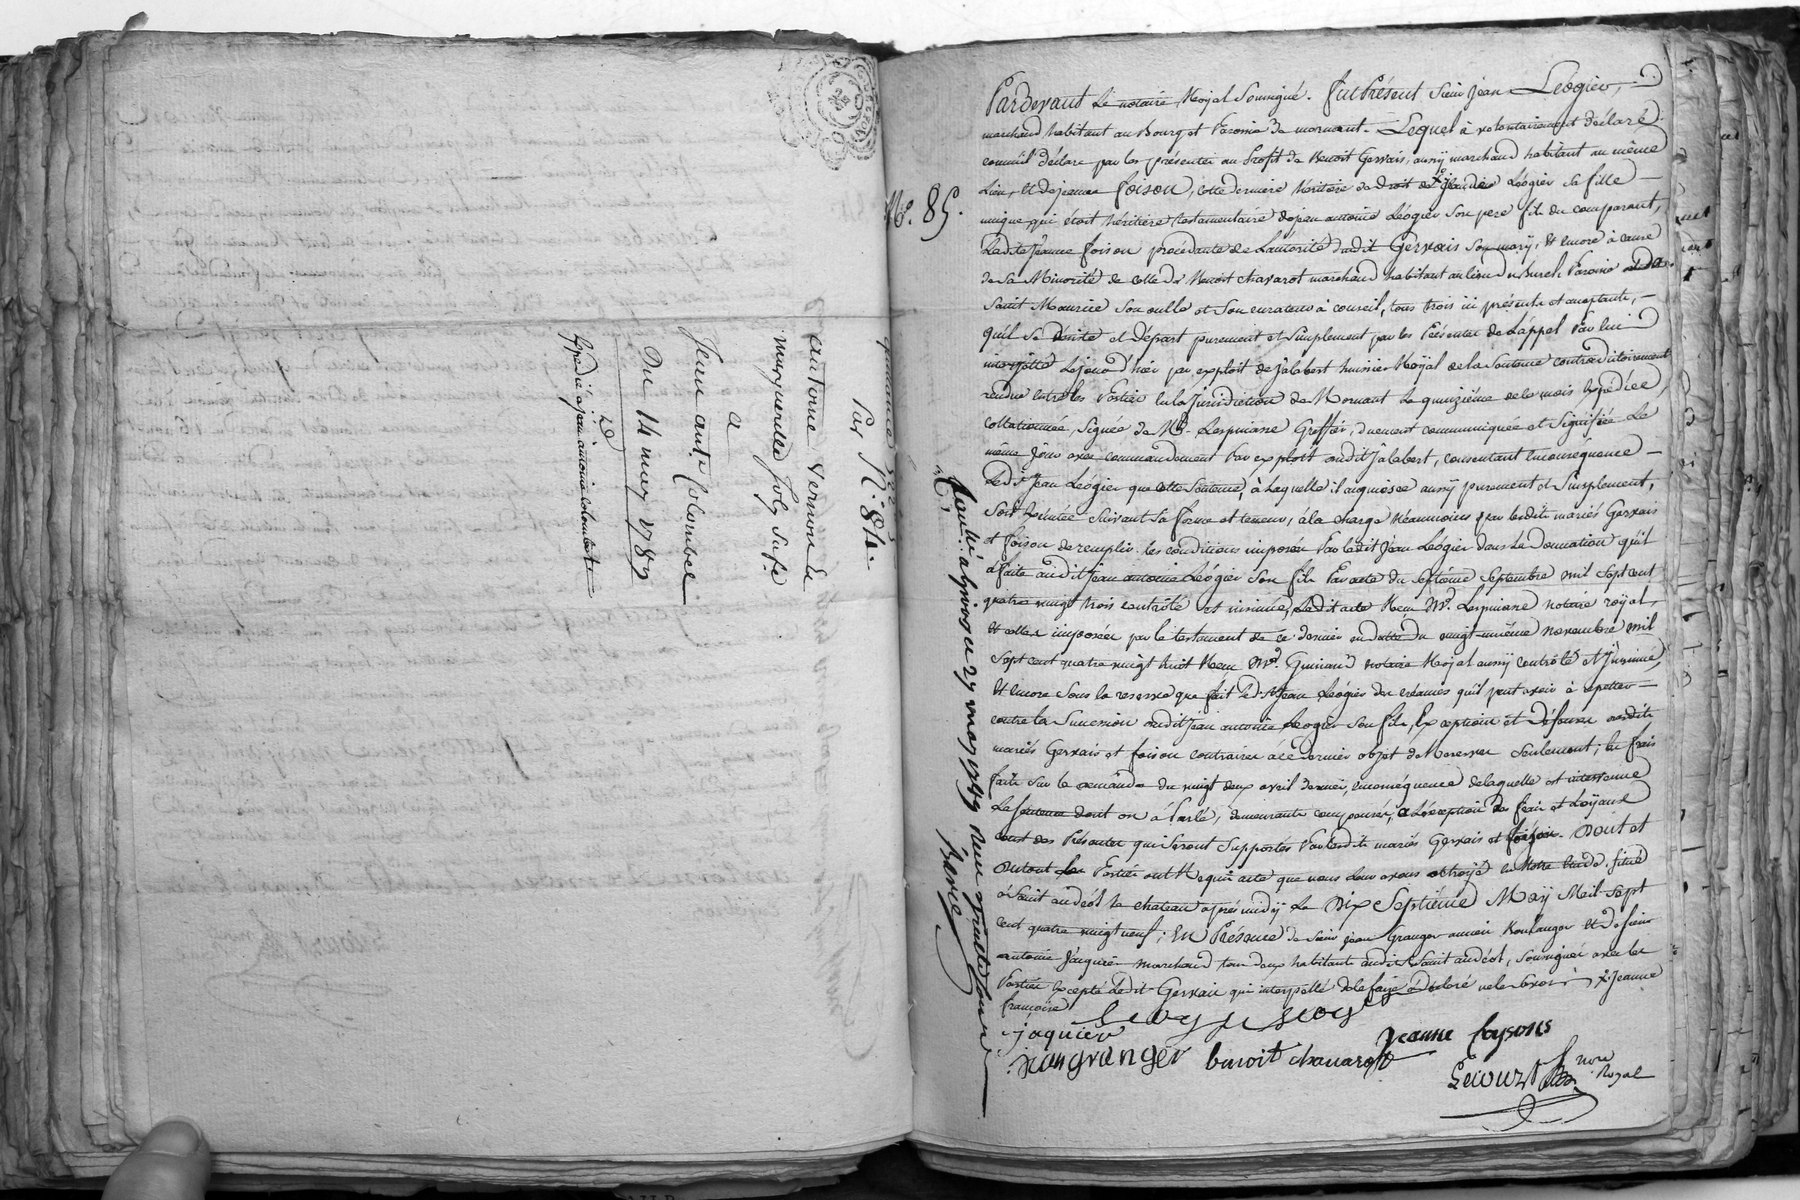 quittance
Par N.° 84.
antoine vernone &
marguerite Joly sa fe
a
Jean ant.e Colombet
Du 14 may 1789
Expedié a jean antoine colombet
N.° 85.
Pardevant Le notaire Royal Soussigné. fut Présent Sieur Jean Léogier,
marchand habitant au Bourg et Paroisse de mornant. Lequel à volontairement déclaré
comm'il déclare par les présentes au Profit de Benoit Gervais, aussy marchand habitant au même
Lieu, Et de jeanne foison, cette derniere héritiere de droit de Léogier Sa fille
unique, qui étoit héritiere testamentaire de jean antoine Léogier Son pere fils du comparant,
Ladite Jeanne foison procédante de Lautorité dudit Gervais Son mary, Et encore à cause
de Sa Minorité de celle de Benoit chavarot marchand habitant au lieu du Burel Paroisse de
Saint Maurice Son oncle et Son curateur à conseil, tous trois ici présents et acceptants,
quil Se désiste et Départ purement et Simplement par les Présentes de Lappel Par lui
interjetté Le jour d'hier par exploit de Jalabert huissier Royal de la Sentence contradictoirement
rendue Entre les Parties en la Jurisdiction de Mornant Le quinzième de ce mois Expédiée,
collationnée, Signée de M.e Lespinasse Greffier, duement communiquée et Signifiée Le
même jour avec commandement Par exploit dudit Jalabert, consentant En consequence
Ledit Jean Léogier que cette Sentence, à Laquelle il acquiesce aussy purement et Simplement,
Soit Exécutée Suivant Sa forme et teneur, à la charge Néanmoins par lesdits mariés Gervais
et foison de remplir les conditions imposées Par ledit Jean Léogier dans La Donnation qu'il
à faite audit Jean antoine Léogier Son fils Par acte du Septième Septembre mil Sept cent
quatre vingt trois contrôlé et insinué, Ledit acte Reçu M.e Lespinasse notaire royal,
Et celles imposées par le testament de ce dernier en datte du vingt-unième novembre mil
Sept cent quatre vingt huit Reçu M.e Guinand notaire Royal aussy contrôlé et Insinué,
Et encore Sous la reserve que fait led. S.r Jean Léogier des créances quil peut avoir à repetter
contre la Succession dudit Jean antoine Leogier Son fils, Exceptions et Défenses desdits
mariés Gervais et foison contraires à ce dernier objet de Reserves Seulement; les frais
faits Sur la demande du vingt deux avril dernier, en conséquence de laquelle est intervenue
La Sentence dont on à Parlé, demeurants compensés, à L'exception des frais et Loyaux
cout des Présentes qui Seront Supportés Par lesdits mariés Gervais et foison. Dont et
du tout Les Parties ont Requis acte que nous Leur avons octroyé en Notre Etude, Situé
à Saint andéol le chateau après midy Le Dix Septième May Mil Sept
cent quatre vingt neuf; En Présence de Sieur jean Granger ancien Boulanger Et de Sieur
antoine Jaquier marchand tous deux habitants audit Saint andéol, Soussignés avec les
Parties Excepté Ledit Gervais qui interpellé de le faire à déclaré ne le Savoir / x Jeanne
françoise
jaquier
jean granger benoit chavarot
jeanne foysons
Lecourt
no.re Royal